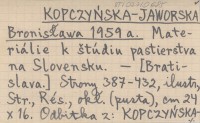 KOPCZYŃSKA-JAWORSKA
Bronisława 1959 a. Mate-
riálie k štúdiu pastierstva
na Slovensku. — [Brati-
slava.] Strony 387-432, ilustr,
Str., Rés., okł. (pusta), cm 24
x 16. Odbitka z: KOPCZYŃSKA-